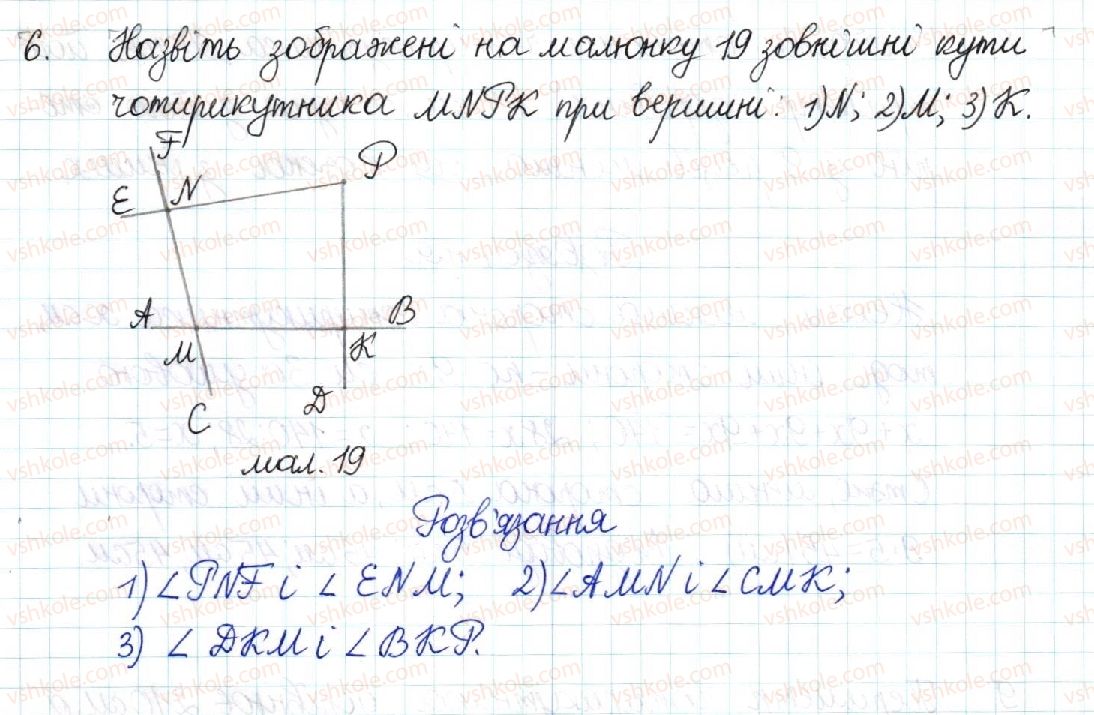 6. Назвіть зображені на малюнку 19 зовнішні кути
чотирикутника MNPK при вершині: 1) N; 2) M; 3) K.
F
P
E
N
A
B
M
K
C
D
мал. 19
Розв'язання
1) ∠PNF і ∠ENM; 2) ∠AMN і ∠CMK;
3) ∠DKM і ∠BKP.